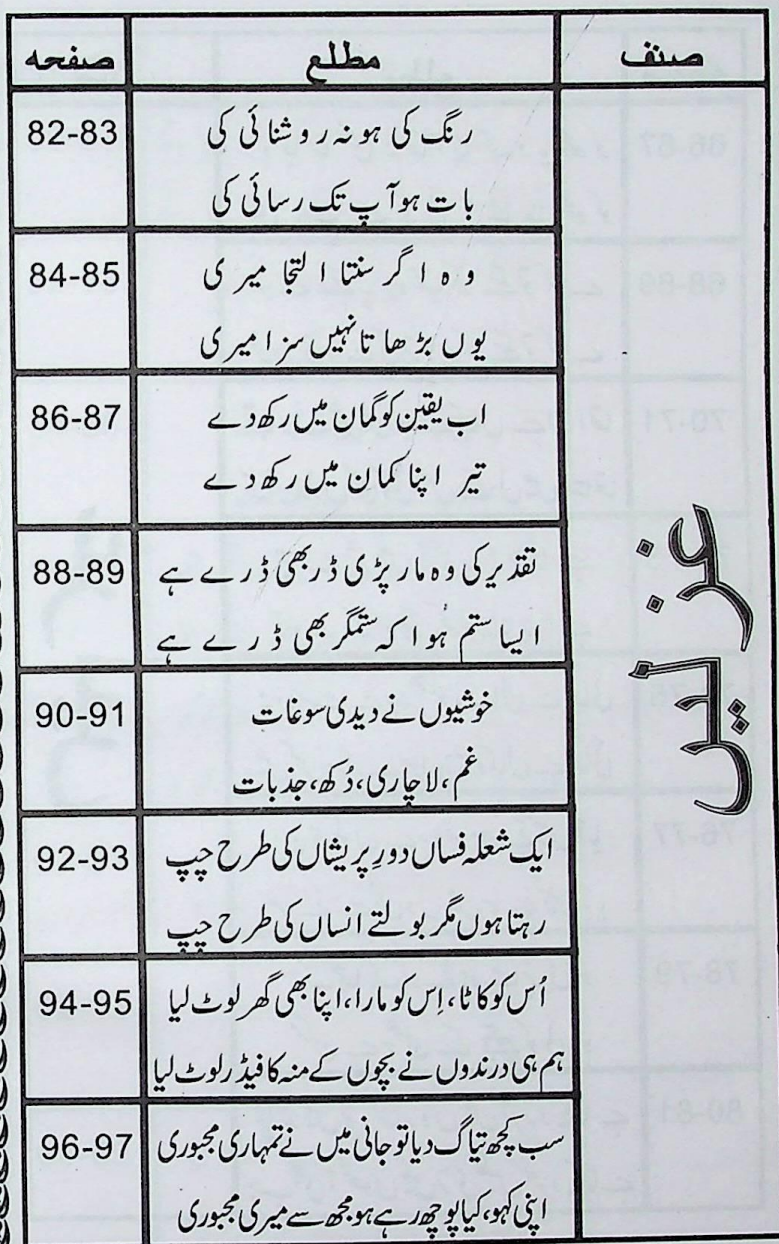 صنف مطلع صفحہ
غزلیں
رنگ کی ہو نہ روشنائی کی 82-83
بات ہو آپ تک رسائی کی
وہ اگر سنتا التجا میری 84-85
یوں بڑھاتا نہیں سزا میری
اب یقین کو گمان میں رکھ دے 86-87
تیر اپنا کمان میں رکھ دے
تقدیر کی وہ مار پڑی ڈر بھی ڈرے ہے 88-89
ایسا ستم ہوا کہ ستمگر بھی ڈرے ہے
خوشیوں نے دیدی سوغات 90-91
غم، لاچاری، دُکھ، جذبات
ایک شعلہ فساں دورِ پریشاں کی طرح چپ 92-93
رہتا ہوں مگر بولتے انساں کی طرح چپ
اُس کو کاٹا، اِس کو مارا، اپنا بھی گھر لوٹ لیا 94-95
ہم ہی درندوں نے بچوں کے منہ کا فیڈر لوٹ لیا
سب کچھ تیاگ دیا تو جانی میں نے تمہاری مجبوری 96-97
اپنی کہو، کیا پوچھ رہے ہو مجھ سے میری مجبوری